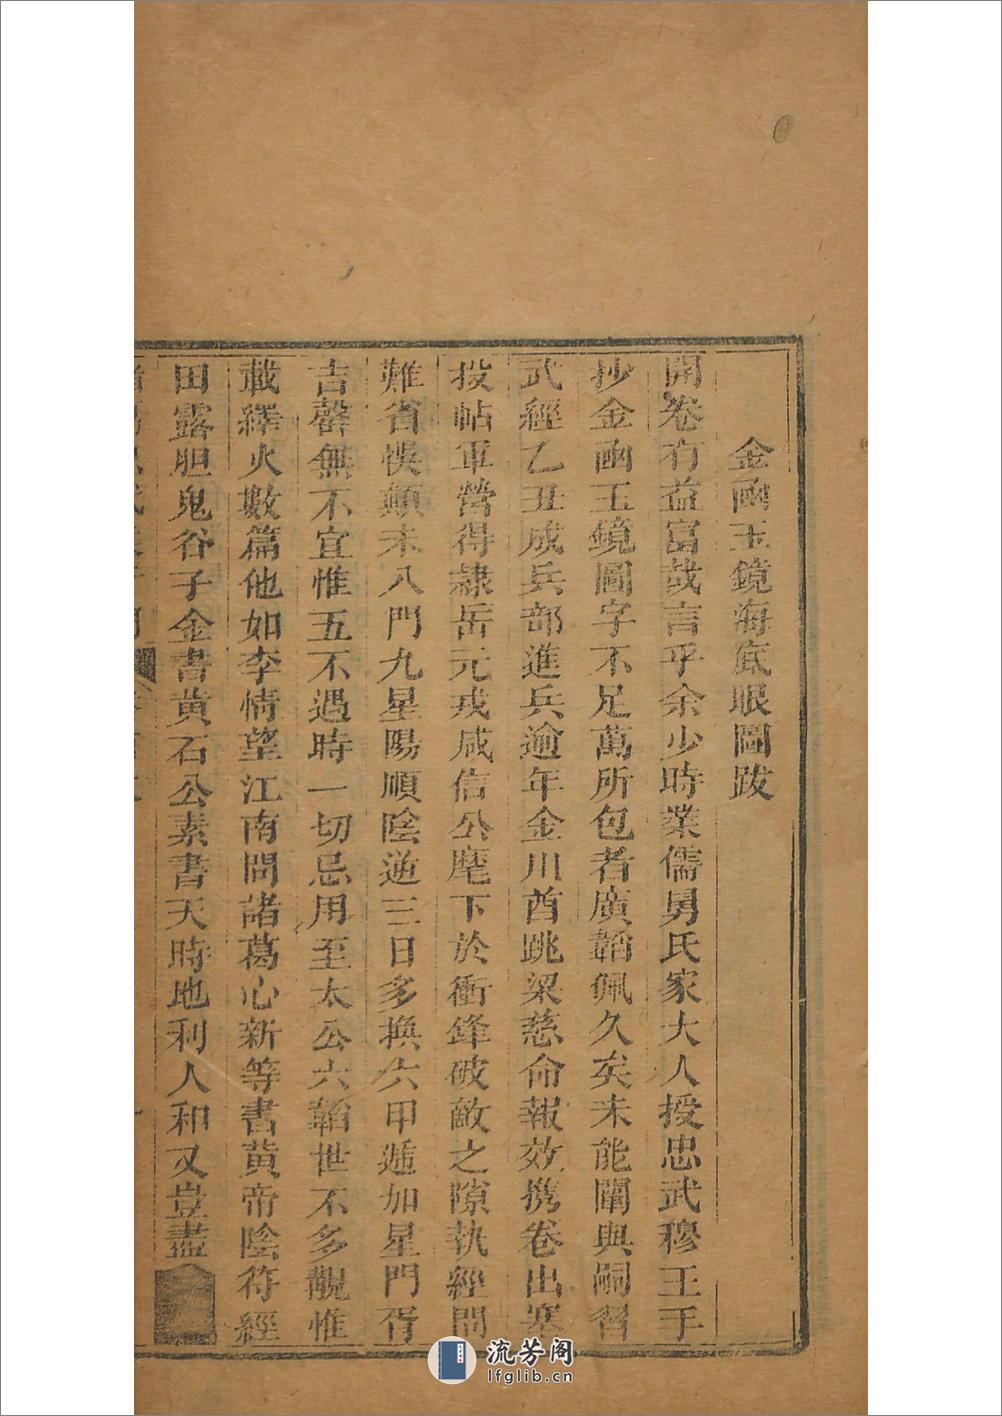 金函玉鏡海底眼圖跋
開卷有益富哉言乎余少時業儒舅氏家大人授忠武穆王手
抄金函玉鏡圖字不足萬所包者廣韜佩久矣未能闡與嗣習
武經乙丑成兵部進兵逾年金川酋跳梁慈命報效携卷出塞
投帖軍營得隷岳元戎咸信公麾下於衝鋒破敵之隙執經問
難省悞顛末八門九星陽順陰逆三日多換六甲遁加星門胥
吉罄無不宜惟五不遇時一切忌用至太公六韜世不多覯惟
載繹火數篇他如李情望江南問諸葛心新等書黄帝陰符經
田露胆鬼谷子金書黄石公素書天時地利人和又豈盡
流芳阁
lfglib.cn